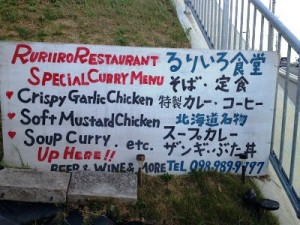 RURIIRO RESTAURANT るりいろ食堂
SPECIAL CURRY MENU そば・定食
♥ CRISPY GARLIC CHICKEN 特製カレー・コーヒー
♥ SOFT MUSTARD CHICKEN 北海道名物
♥ SOUP CURRY, etc. スープカレー
UP HERE!! ザンギ・ぶた丼
BEER & WINE & MORE TEL 098-989-9797